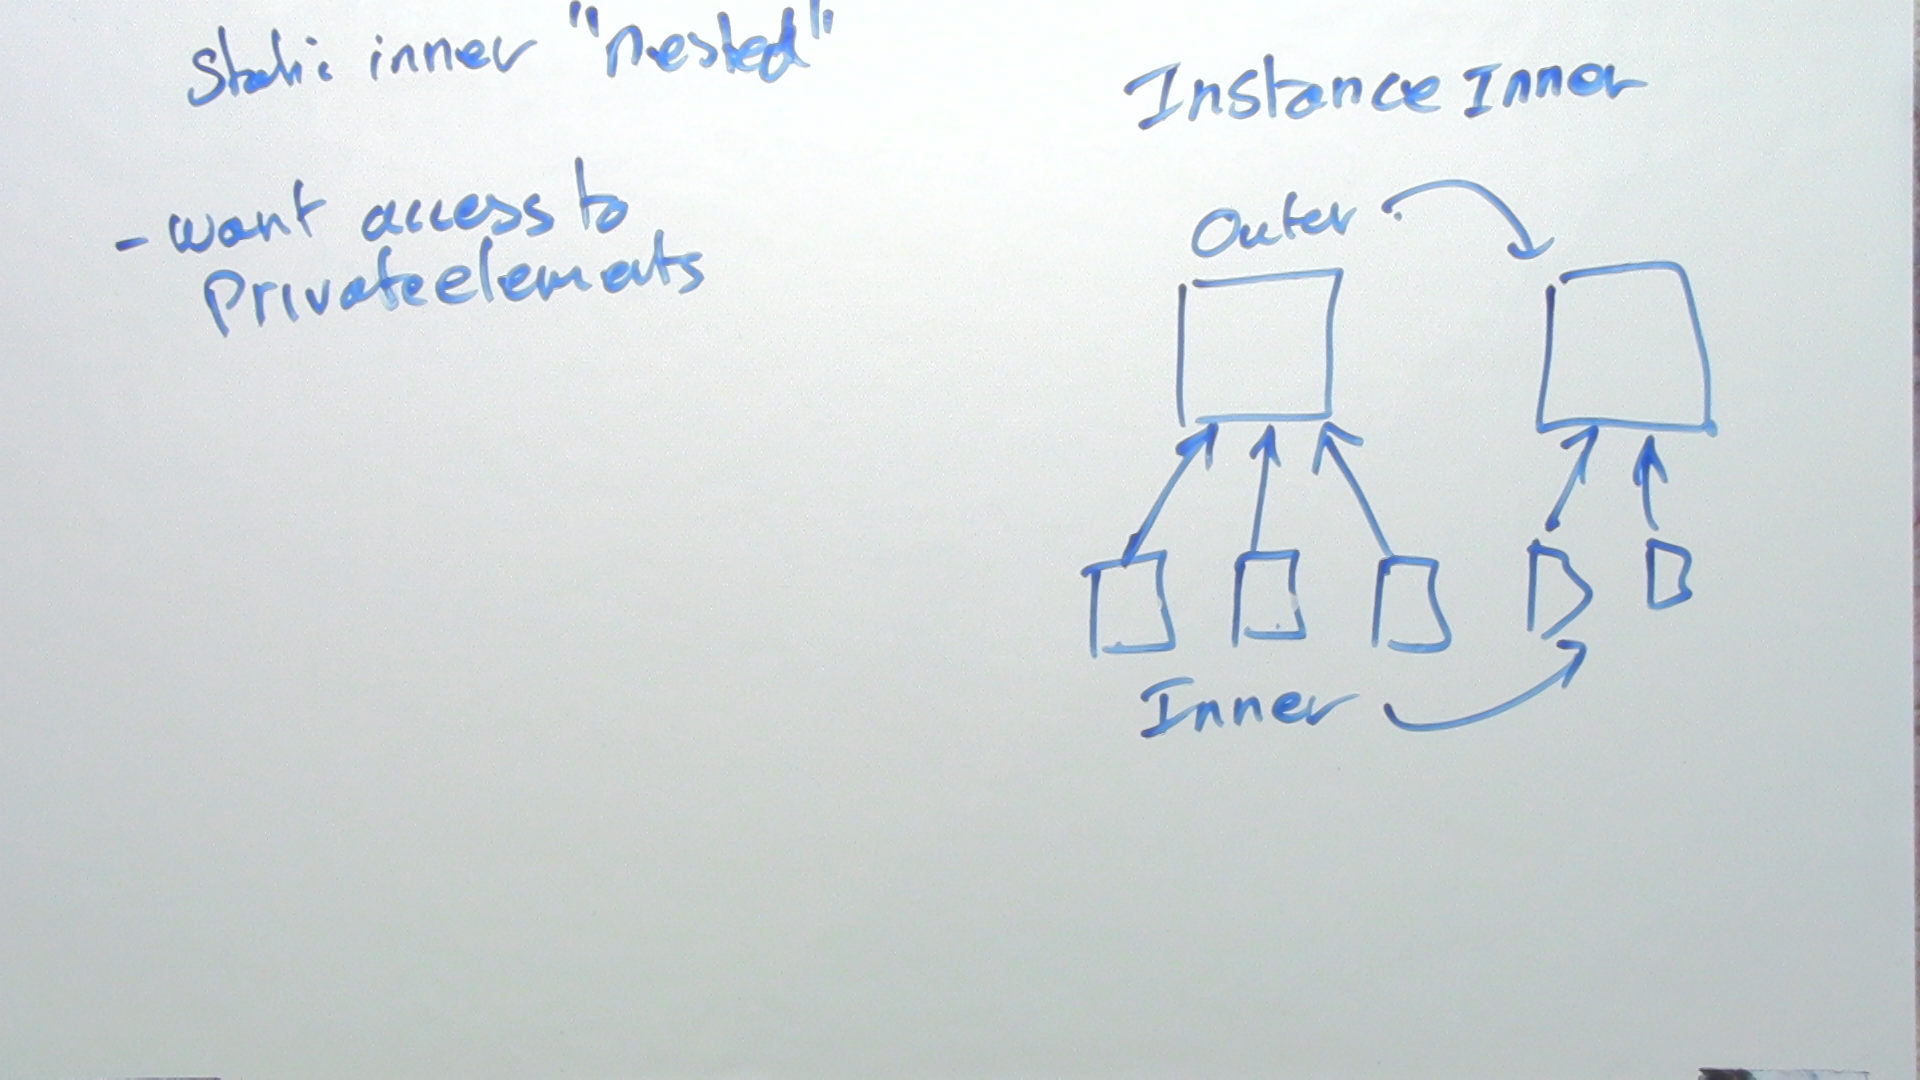 Static inner "nested"
- want access to
Private elements
Instance Inner
Outer
Inner